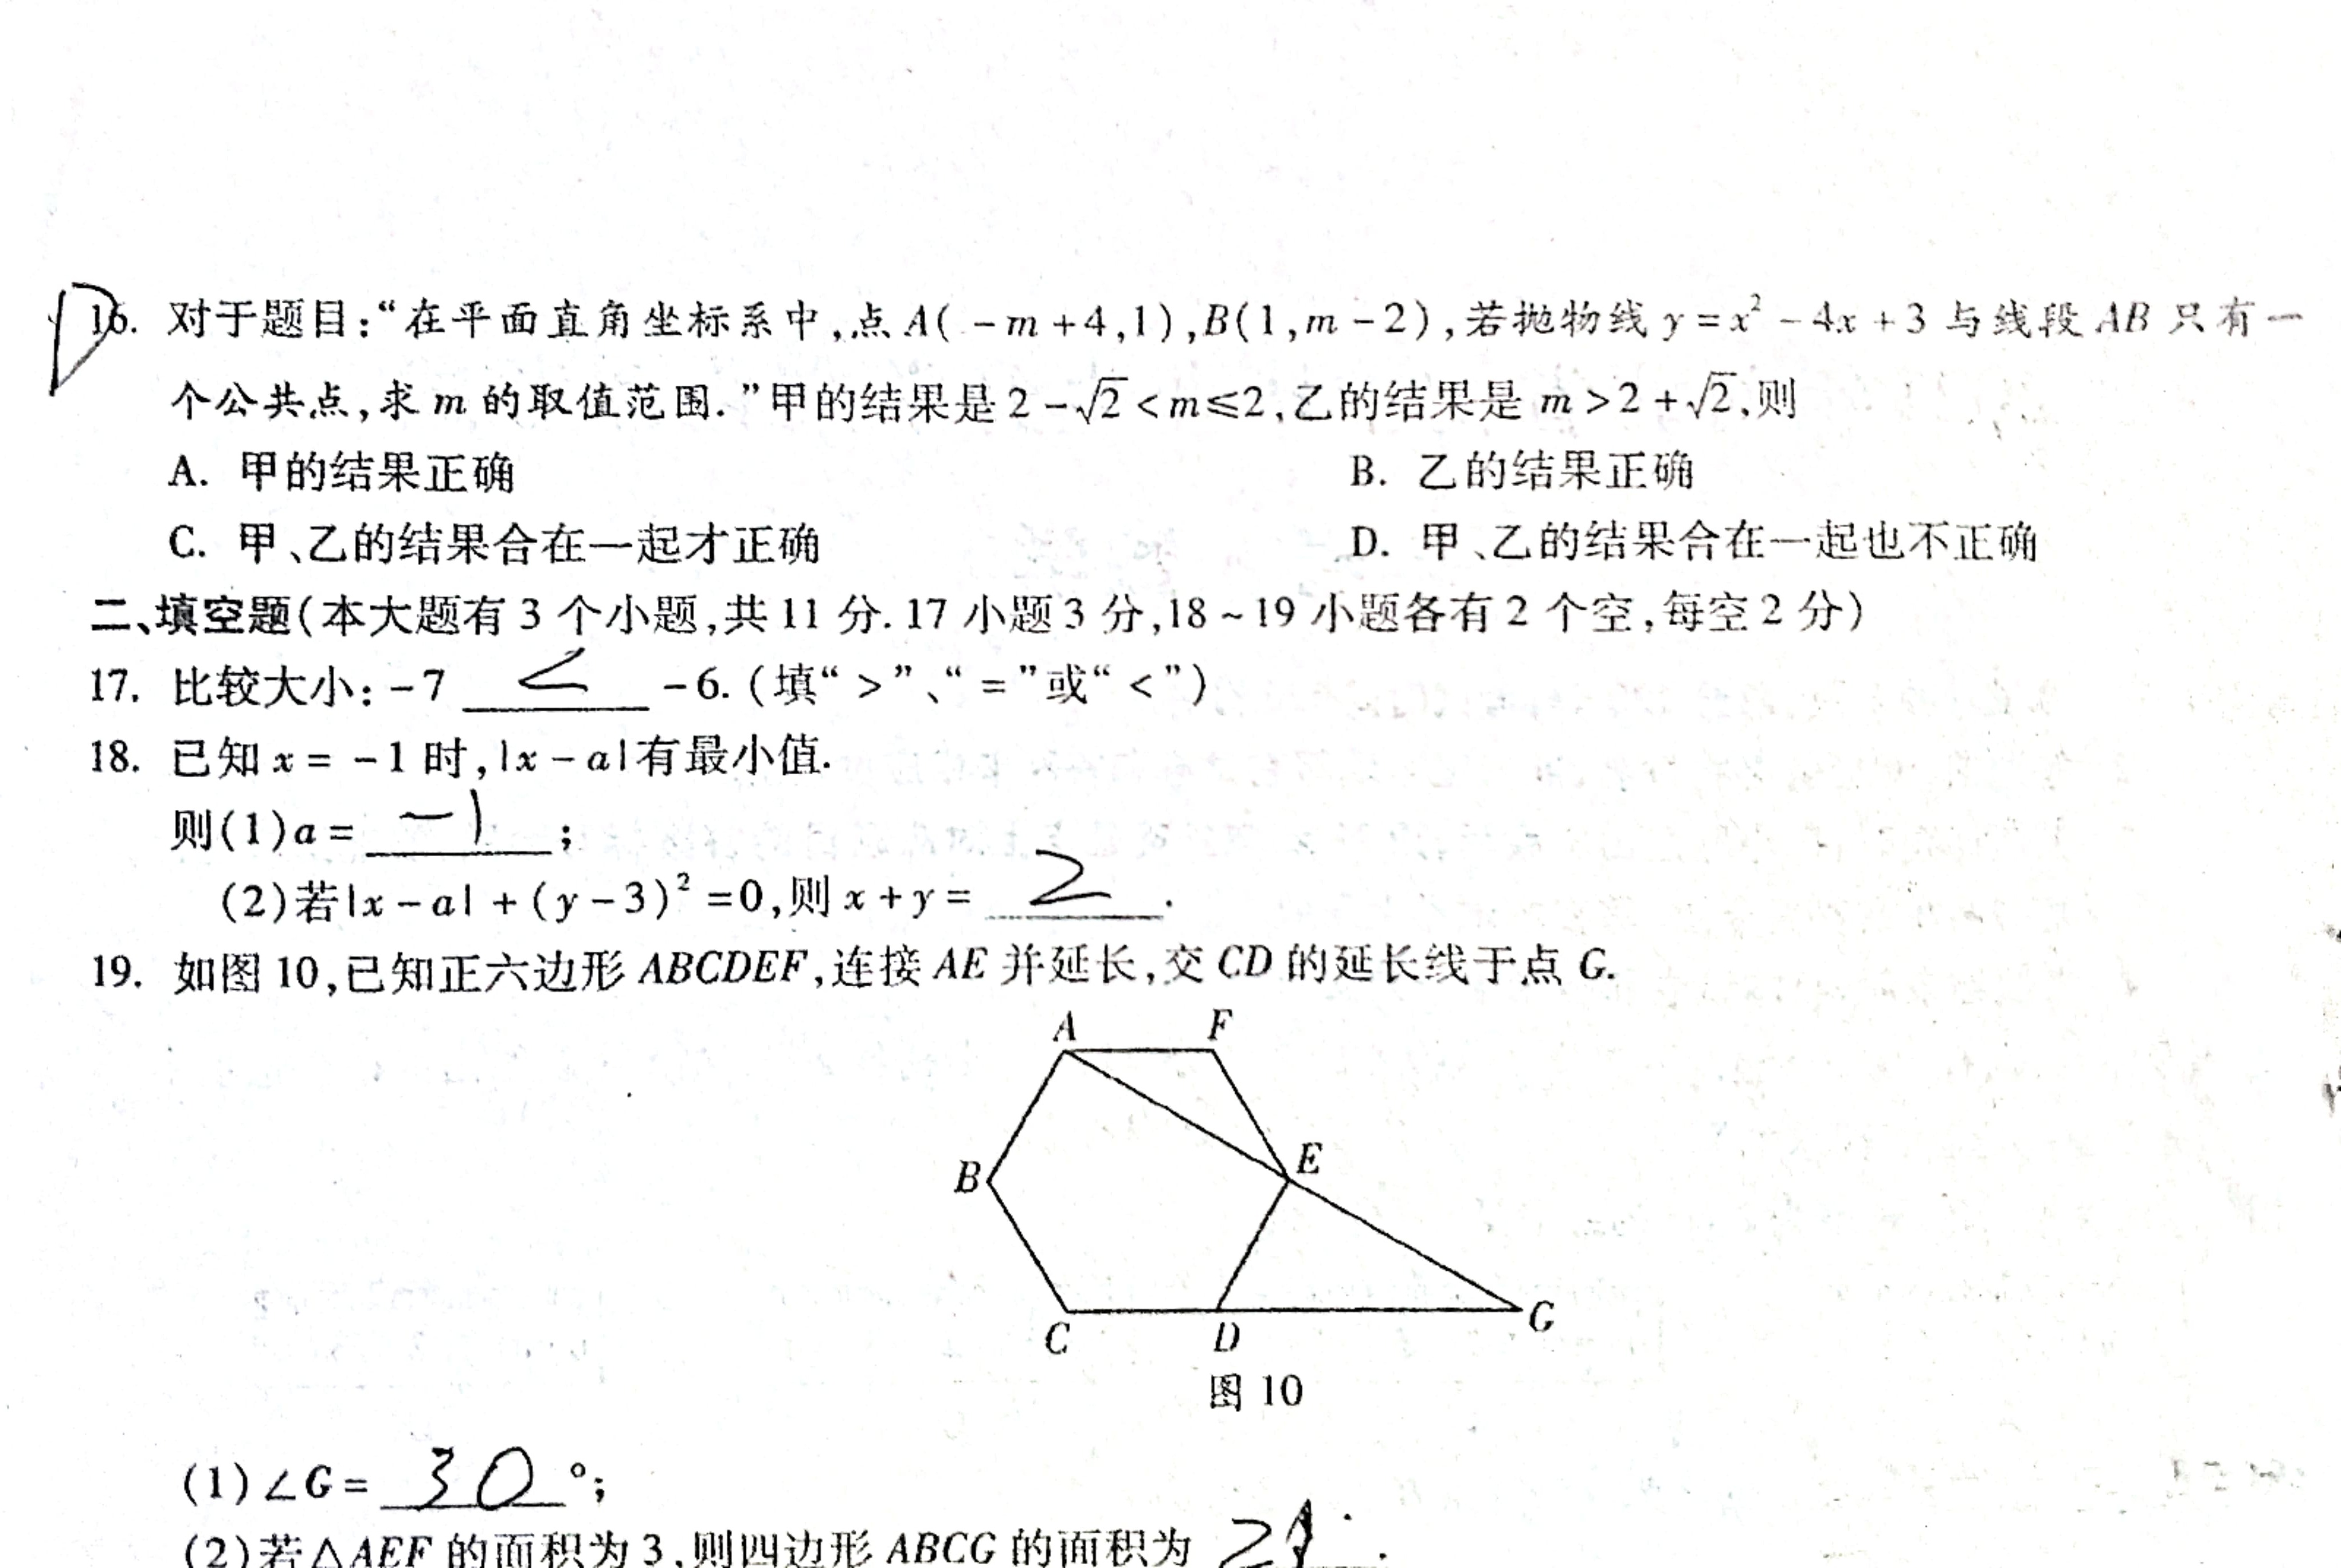 16. 对于题目:“在平面直角坐标系中,点A(-m+4,1),B(1,m-2),若抛物线y=x²-4x+3与线段AB只有一
个公共点,求m的取值范围.”甲的结果是2-√2<m≤2,乙的结果是m>2+√2,则
D
A. 甲的结果正确 B. 乙的结果正确
C. 甲、乙的结果合在一起才正确 D. 甲、乙的结果合在一起也不正确
二、填空题(本大题有3个小题,共11分.17小题3分,18~19小题各有2个空,每空2分)
17. 比较大小:-7 < -6.(填“>”、“=”或“<”)
18. 已知x=-1时,|x-a|有最小值.
则(1)a= -1 ;
(2)若|x-a|+(y-3)²=0,则x+y= 2 .
19. 如图10,已知正六边形ABCDEF,连接AE并延长,交CD的延长线于点G.
A F
B E
C D G
图10
(1)∠G= 30 °;
(2)若△AEF的面积为3,则四边形ABCG的面积为